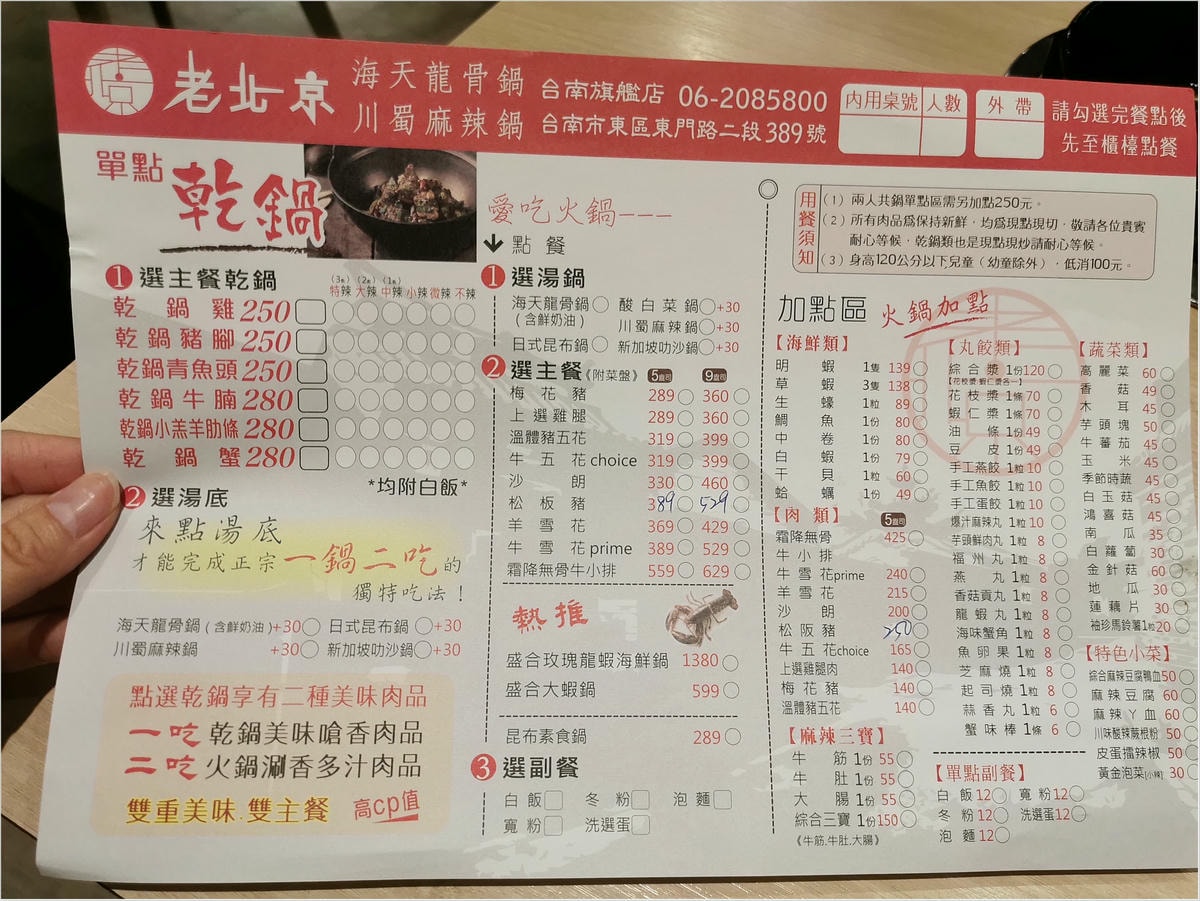 老北京
海天龍骨鍋
川蜀麻辣鍋
台南旗艦店 06-2085800
台南市東區東門路二段389號
內用桌號 人數
外帶
請勾選完餐點後
先至櫃檯點餐
單點
乾鍋
1 選主餐乾鍋
(3倍) (2倍) (1倍)
特辣 大辣 中辣 小辣 微辣 不辣
乾鍋雞 250
乾鍋豬腳 250
乾鍋青魚頭 250
乾鍋牛腩 280
乾鍋小羔羊肋條 280
乾鍋蟹 280
*均附白飯*
2 選湯底
來點湯底
才能完成正宗一鍋二吃的
獨特吃法！
海天龍骨鍋(含鮮奶油)+30 日式昆布鍋 +30
川蜀麻辣鍋 +30 新加坡叻沙鍋 +30
點選乾鍋享有二種美味肉品
一吃 乾鍋美味嗆香肉品
二吃 火鍋涮香多汁肉品
雙重美味.雙主餐
高cp值
愛吃火鍋---
點餐
1 選湯鍋
海天龍骨鍋 酸白菜鍋 +30
(含鮮奶油) 川蜀麻辣鍋 +30
日式昆布鍋 新加坡叻沙鍋 +30
2 選主餐《附菜盤》 5盎司 9盎司
梅花豬 289 360
上選雞腿 289 360
溫體豬五花 319 399
牛五花choice 319 399
沙朗 330 460
松板豬 389 529
羊雪花 369 429
牛雪花prime 389 529
霜降無骨牛小排 559 629
熱推
盛合玫瑰龍蝦海鮮鍋 1380
盛合大蝦鍋 599
昆布素食鍋 289
3 選副餐
白飯 冬粉 泡麵
寬粉 洗選蛋
用餐須知
(1) 兩人共鍋單點區需另加點250元。
(2) 所有肉品為保持新鮮，均為現點現切，敬請各位貴賓
耐心等候，乾鍋類也是現點現炒請耐心等候。
(3) 身高120公分以下兒童（幼童除外），低消100元。
加點區 火鍋加點
【海鮮類】
明蝦 1隻 139
草蝦 3隻 138
生蠔 1粒 89
鯛魚 1份 80
中卷 1份 80
白蝦 1份 79
干貝 1粒 60
蛤蠣 1份 49
【肉類】 5盎司
霜降無骨 425
牛小排
牛雪花prime 240
羊雪花 215
沙朗 200
松阪豬 250
牛五花choice 165
上選雞腿肉 140
梅花豬 140
溫體豬五花 140
【麻辣三寶】
牛筋 1份 55
牛肚 1份 55
大腸 1份 55
綜合三寶 1份 150
《牛筋.牛肚.大腸》
【丸餃類】
綜合漿 1份 120
【花枝漿.蝦仁漿各一】
花枝漿 1條 70
蝦仁漿 1條 70
油條 1份 49
豆皮 1份 49
手工燕餃 1粒 10
手工魚餃 1粒 10
手工蛋餃 1粒 10
爆汁麻辣丸 1粒 10
芋頭鮮肉丸 1粒 8
福州丸 1粒 8
燕丸 1粒 8
香菇貢丸 1粒 8
龍蝦丸 1粒 8
海味蟹角 1粒 8
魚卵果 1粒 8
芝麻燒 1粒 8
起司燒 1粒 8
蒜香丸 1粒 6
蟹味棒 1條 6
【單點副餐】
白飯 12 寬粉 12
冬粉 12 洗選蛋 12
泡麵 12
【蔬菜類】
高麗菜 60
香菇 49
木耳 45
芋頭塊 50
牛蕃茄 45
玉米 45
季節時蔬 45
白玉菇 45
鴻喜菇 45
南瓜 35
白蘿蔔 30
金針菇 60
地瓜 30
蓮藕片 30
袖珍馬鈴薯 1粒 20
【特色小菜】
綜合麻辣豆腐鴨血 50
麻辣豆腐 60
麻辣丫血 60
川味酸辣蕨根粉 50
皮蛋擂辣椒 50
黃金泡菜[小辣] 30